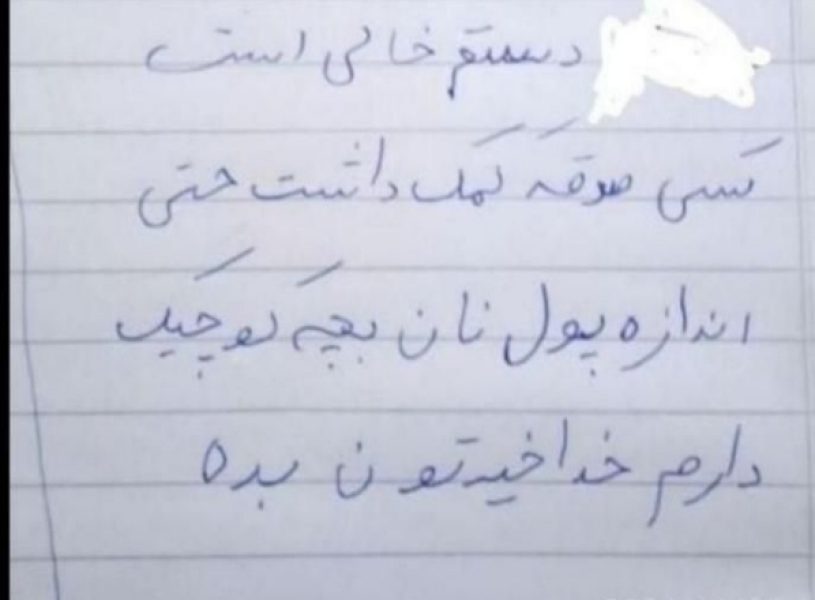 دستم خالی است
کسی صوقه کمک داشت حتی
اندازه پول نان بچه کوچیک
دارم خدا خیرتون بده